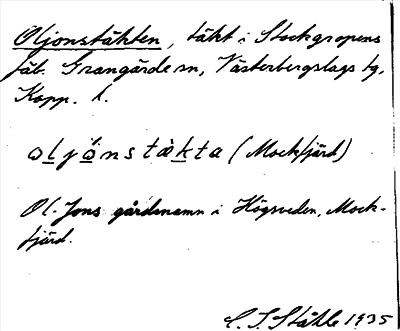 Oljonstäkten, täkt i Stockgropens
fäb. Grangärde sn, Västerbergslags tg,
Kopp. l.
oljónstäkta (Mockfjärd)
Ol-Jons gårdsnamn i Högsveden, Mock-
fjärd.
C. I. Ståhle 1935